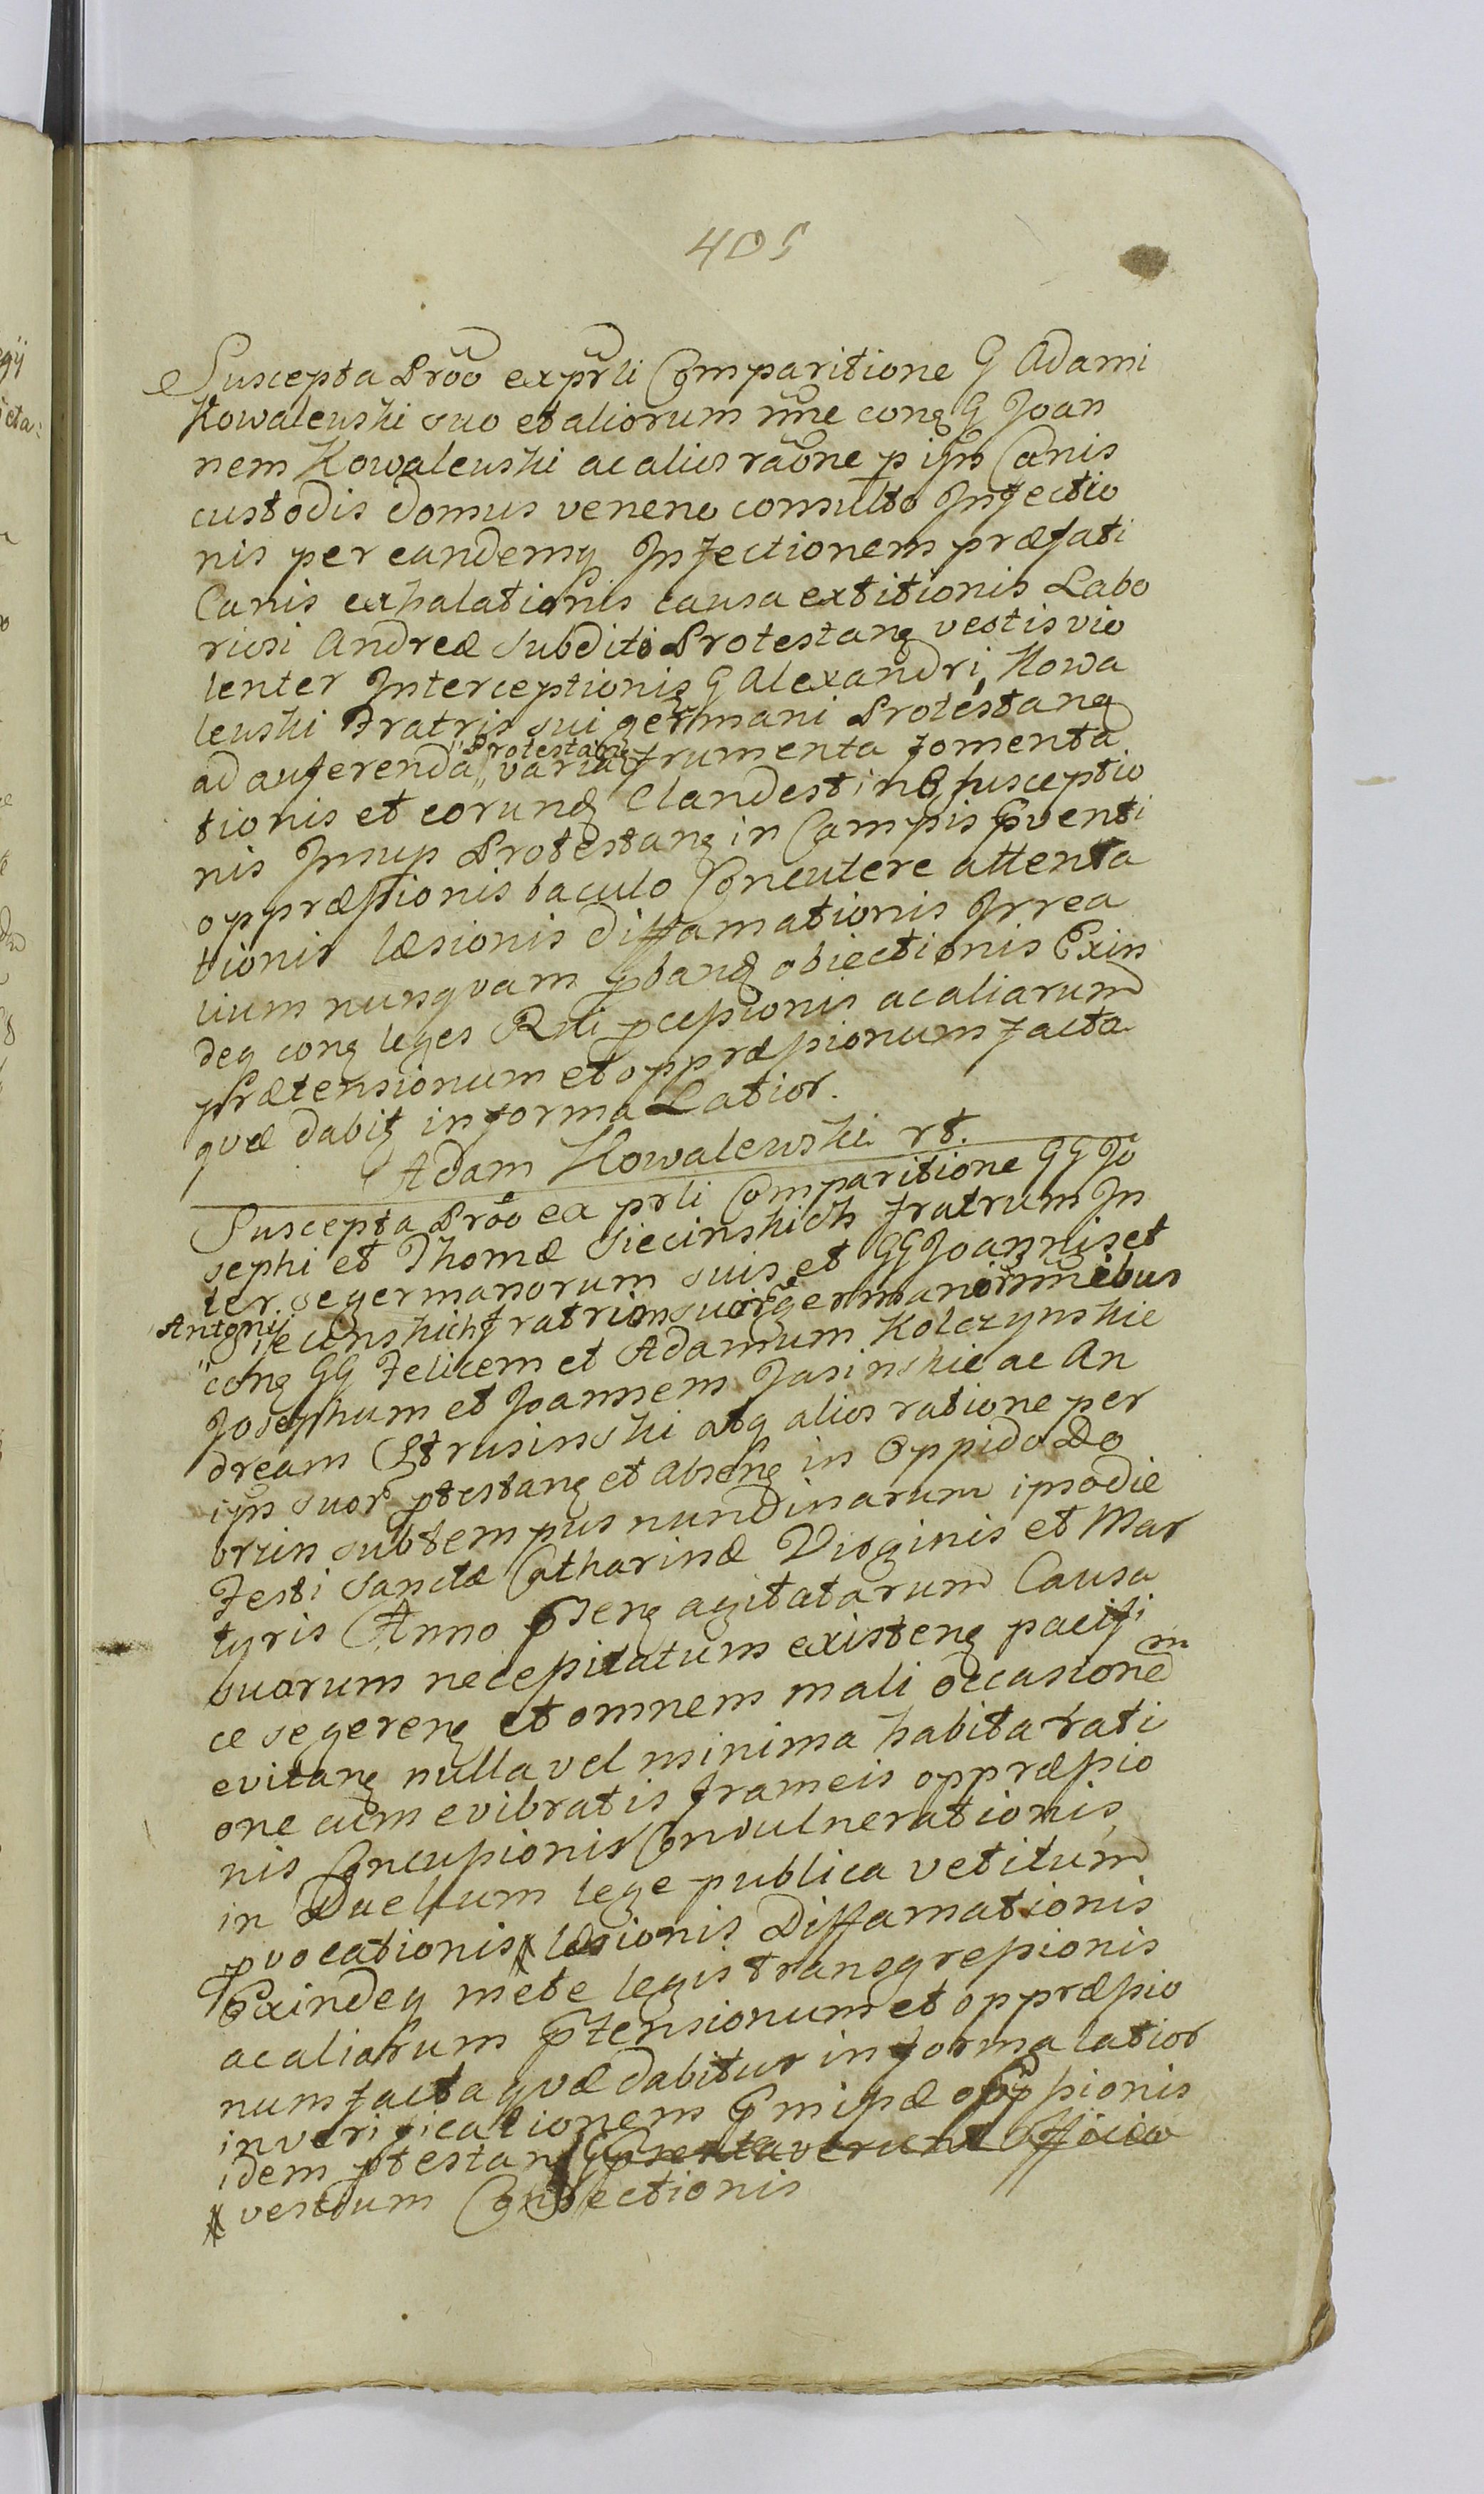 405
Suscepta Prõõ ex prli Comparitione G Adami
Kowalewski suo et aliorum nñe conq G Joan
nem Kowalewski ac alios raõne p ips Canis
custodis domus veneno consulto Infectio
nis per eandemq Infectionem præfati
Canis exhalationis causa extitionis Labo
riosi Andreæ subditi Protestanq vestis vio
lenter Interceptionis G Alexandri Kowa
lewski Fratris sui germani Protestanq
ad auferenda "Protestanq" varia frumenta fomenta
tionis et eorunq Clandestinæ susceptio
nis Insup Protestanq in Campis pventi
oppræssionis baculo Concutere attenta
tionis læsionis diffamationis Irrea
lium nunqvam pbanq obiectionis Exin
deq conq leges Rni pcessionis ac aliarum
prætensionum et oppræssionum facta
qvæ dabitq in forma Latior.
Adam Kowalewski rt.
Suscepta Prõõ ex prli Comparitione GG Jo
sephi et Thomæ Siecinskich fratrum In
ter se germanorum suis et GG Joannis et
Antonij Siecinskich fratrum suorq germanor nñebus
conq GG Felicem et Adamum Kolczynskie
Josephum et Joannem Jasinskie ac An
dream Strusinski atq alios ratione per
ips suor ptestanq et absenq in Oppido Do
brzin sub tempus nundinarum ipso die
Festi Sanctæ Catharinæ Virginis et Mar
tyris Anno psenq agitatarum Causa
suorum necessitatum existenq pacifi
ce se gerenq et omnem mali occasionem
evitanq nulla vel minima habita rati
one cum evibratis frameis oppræssio
nis Concussionis Convulnerationis
in Duellum lege publica vetitum
pvocationis læsionis Diffamationis
Exindeq mete legis transgressionis
ac aliarum ptensionum et oppræssio
num facta qvæ dabitur in forma latior
in verificationem pmissæ oppssionis
idem ptestanq præsentaverunt Officio
vestium Conssectionis